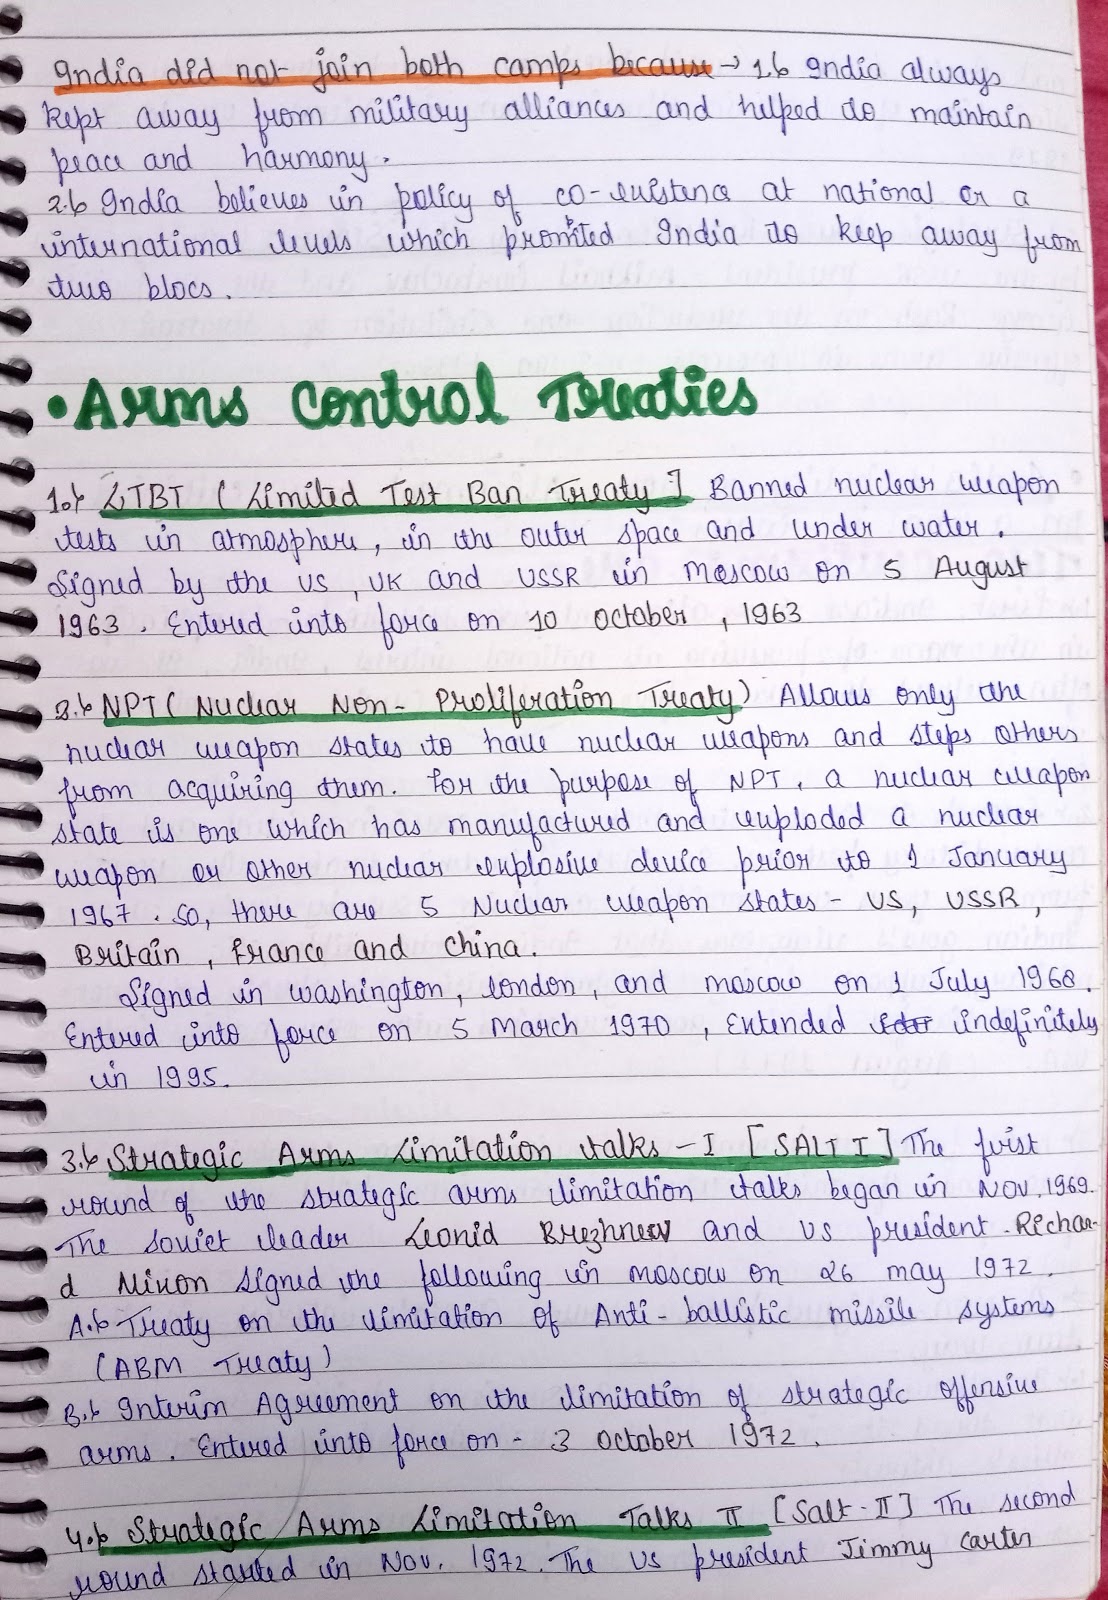 India did not join both camps because → 1.) India always
kept away from military alliances and helped to maintain
peace and harmony.
2.) India believes in policy of co-existence at national or a
international levels which promted India to keep away from
two blocs.
• Arms Control Treaties
1.) LTBT (Limited Test Ban Treaty] Banned nuclear weapon
tests in atmosphere, in the outer space and under water.
Signed by the US, UK and USSR in Moscow on 5 August
1963. Entered into force on 10 October, 1963
2.) NPT (Nuclear Non-Proliferation Treaty) Allows only the
nuclear weapon states to have nuclear weapons and stops others
from acquiring them. For the purpose of NPT, a nuclear weapon
state is one which has manufactured and exploded a nuclear
weapon or other nuclear explosive device prior to 1 January
1967. So, there are 5 Nuclear weapon states - US, USSR,
Britain, France and China.
Signed in washington, london, and moscow on 1 July 1968.
Entered into force on 5 March 1970, Extended indefinitely
in 1995.
3.) Strategic Arms Limitation talks - I [SALT I] The first
round of the strategic arms limitation talks began in Nov. 1969.
The soviet leader Leonid Brezhnev and US president Richar-
d Nixon signed the following in moscow on 26 may 1972.
A.) Treaty on the limitation of Anti-ballistic missile systems
(ABM Treaty)
B.) Interim Agreement on the limitation of strategic offensive
arms. Entered into force on - 3 October 1972.
4.) Strategic Arms Limitation Talks II [Salt-II] The second
round started in Nov. 1972. The US president Jimmy Carter